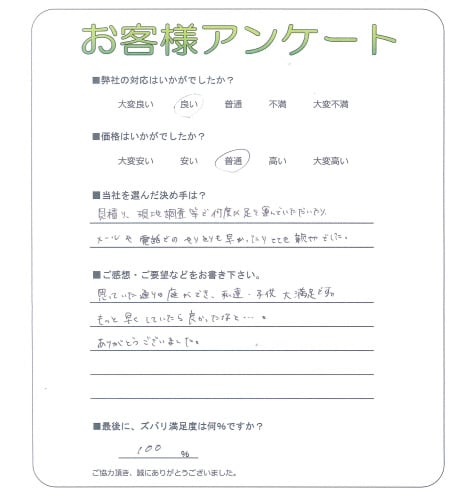 お客様アンケート
■弊社の対応はいかがでしたか？
大変良い 良い 普通 不満 大変不満
■価格はいかがでしたか？
大変安い 安い 普通 高い 大変高い
■当社を選んだ決め手は？
見積り、現地調査等で何度も足を運んでいただいたり、
メールや電話でのやりとりも早かったりとても親切でした。
■ご感想・ご要望などをお書き下さい。
思っていた通りの庭ができ、私達・子供大満足です
もっと早くしていたら良かったなと…。
ありがとうございました。
■最後に、ズバリ満足度は何%ですか？
100 %
ご協力頂き、誠にありがとうございました。